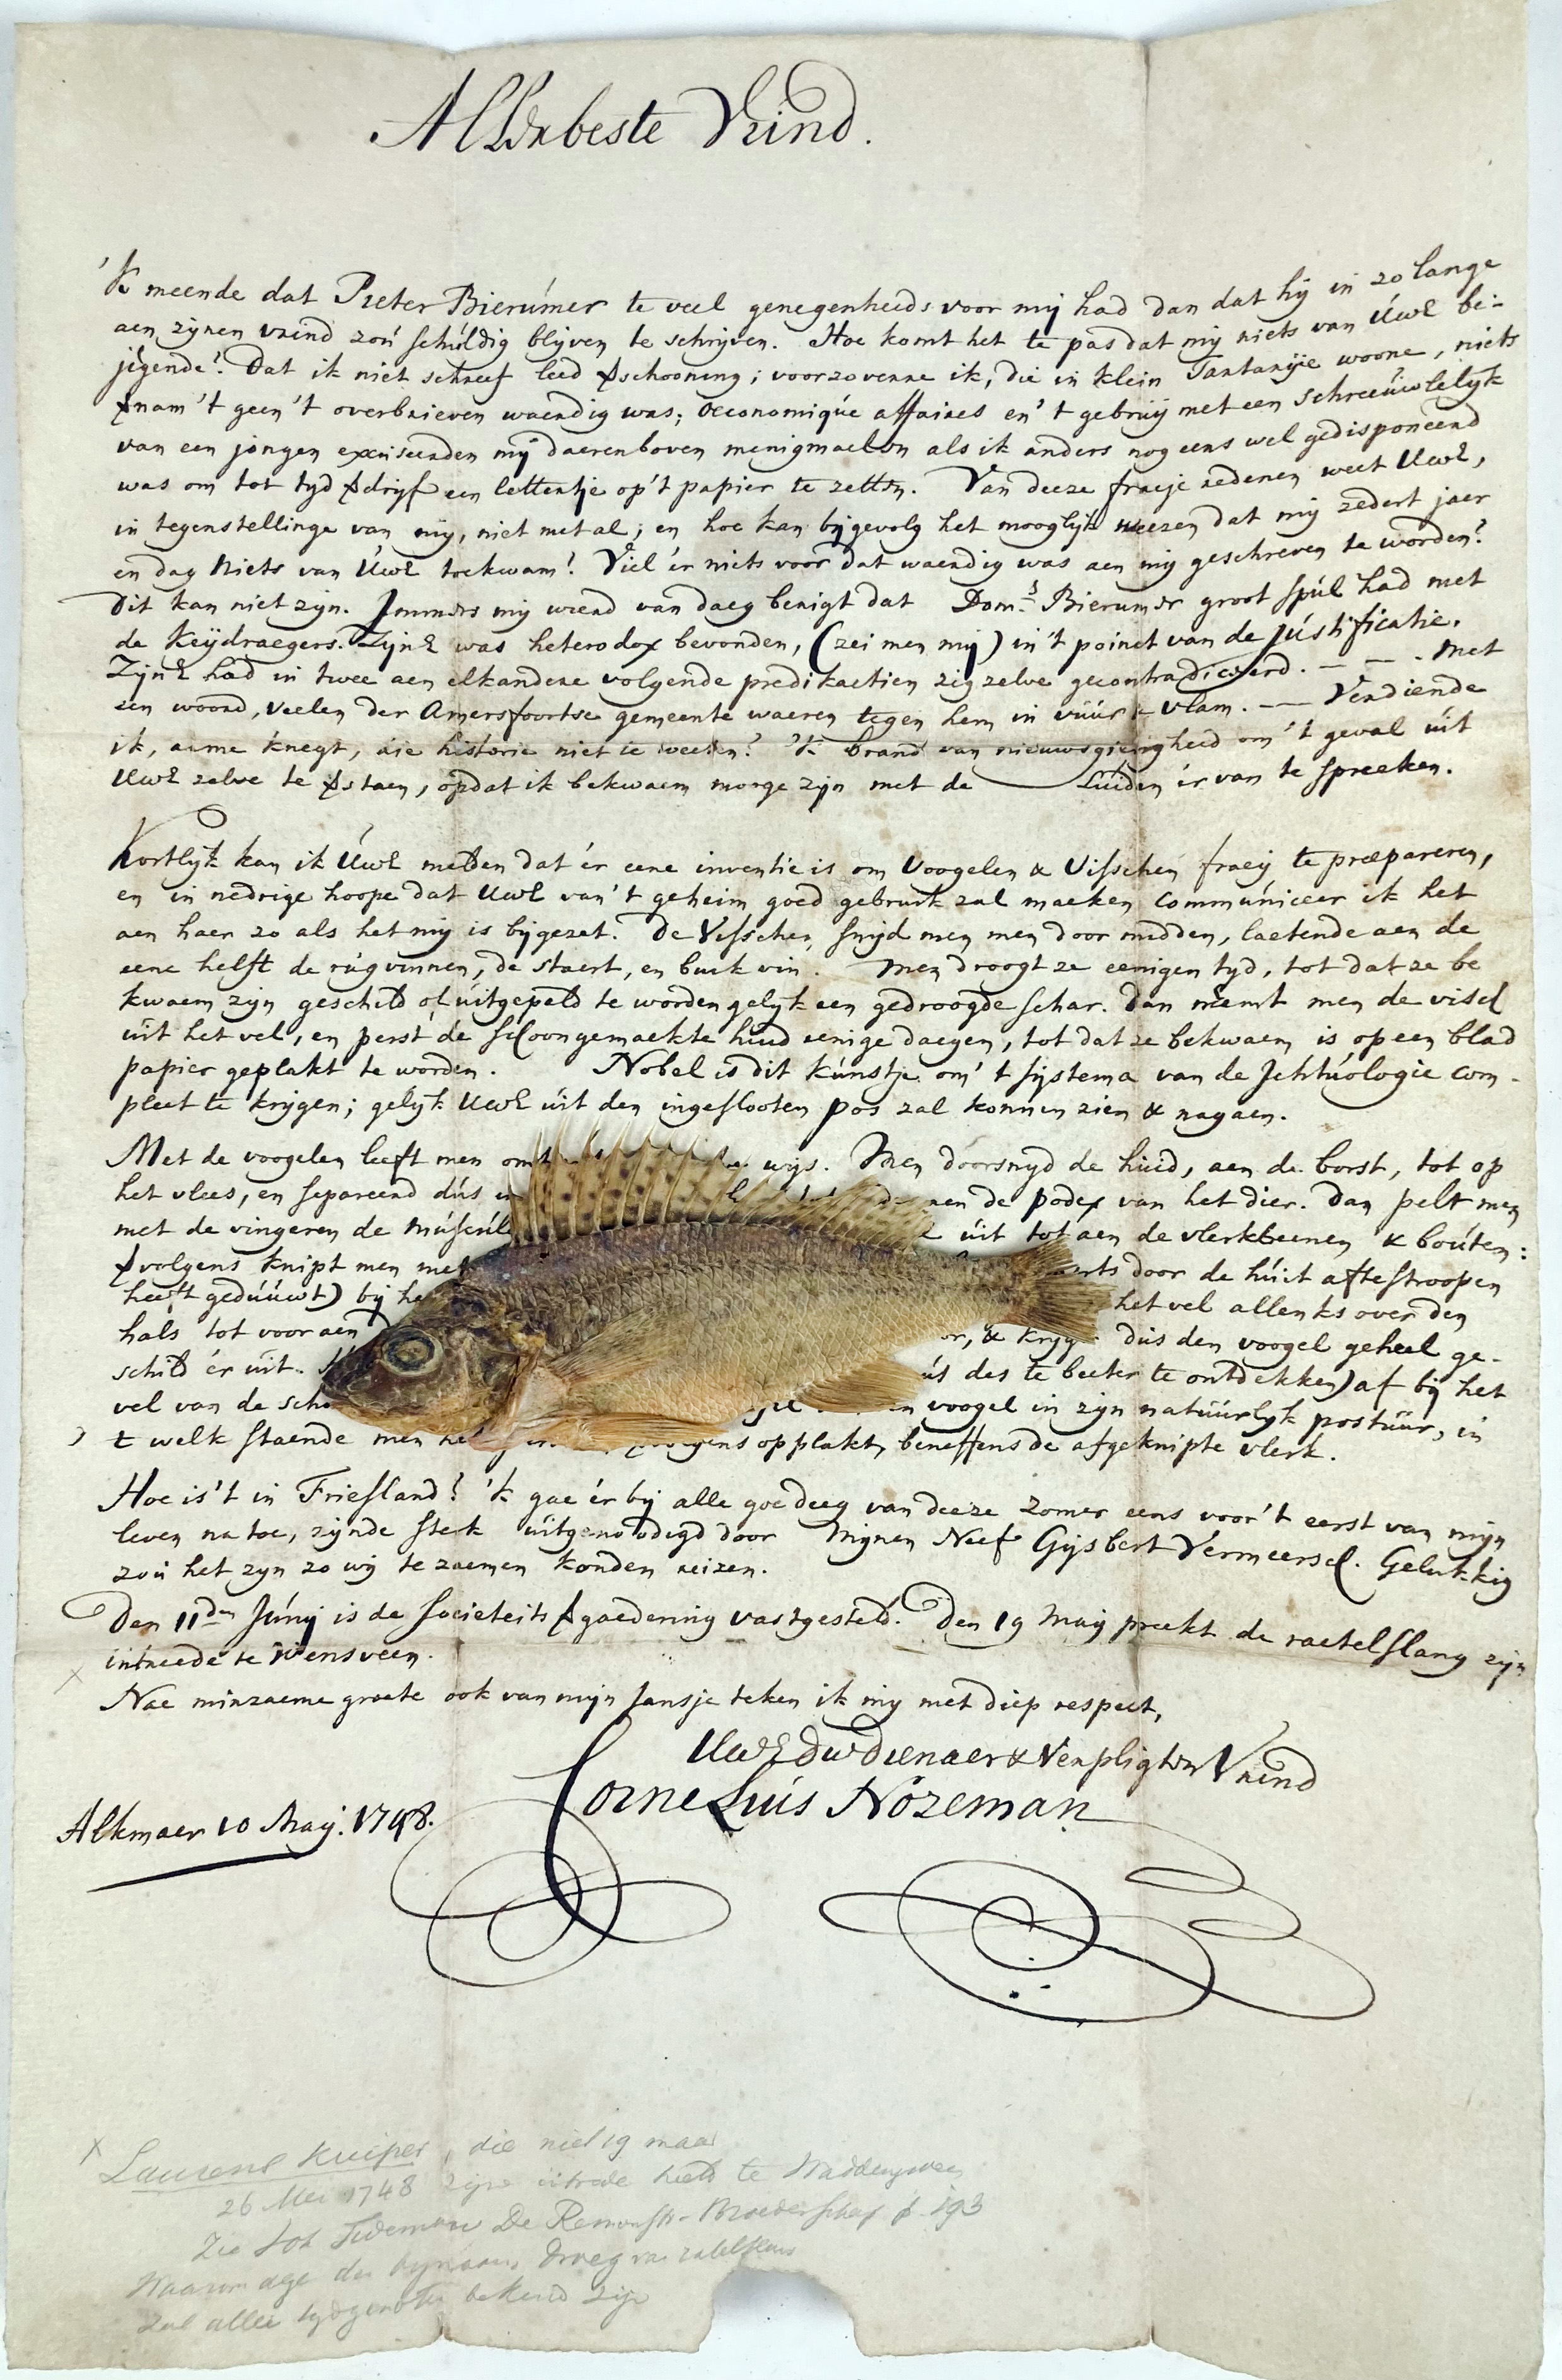 Allerbeste Vrind.
'K meende dat Pieter Bierúmer te veel genegenheids voor mij had dan dat hij in zo lange
aen zijnen vrind zoú schúldig blijven te schrijven. Hoe komt het te pas dat mij niets van ÚwE be:
jégende? Dat ik niet schreef leed verschooning; voorzoverre ik, die in klein Tartarije woone, niets
vernam 't geen 't overbrieven waerdig was; oeconomiqúe affaires en 't gebruij met een schreeúwlelijk
van een jongen excúseerden mij daerenboven menigmaelen als ik anders nog eens wel gedisponeerd
was om tot tijdverdrijf een lettertje op 't papier te zetten. Van deeze fraeje redenen weet UwE,
in tegenstellinge van mij, niet met al; en hoe kan bijgevolg het mooglijk weezen dat mij zedert jaer
en dag niets van ÚwE toekwam? Viel ér niets voor dat waerdig was aen mij geschreven te worden?
Dit kan niet zijn. Immers mij wierd van daeg berigt dat Doms Bierumer groot spúl had met
de Keijdraegers. ZijnE was heterodox bevonden, (zei men mij) in 't poinct van de Jústificatie.
ZijnE had in twee aen elkandere volgende predikaetien zig zelve gecontradiceerd. — — . Met
een woord, veelen der Amersfoortse gemeente waeren tegen hem in vúúr & vlam. — Verdiende
ik, arme knegt, die historie niet te weeten? 'K brand van nieuwsgierigheid om 't geval úit
UwE zelve te verstaen, opdat ik bekwaem morge zijn met de — Lúiden ér van te spreeken.
Kortlijk kan ik ÚwE melden dat ér eene inventie is om Voogelen & Visschen fraeij te præpareren,
en in nedrige hoope dat UwE van 't geheim goed gebruik zal maeken commúniceer ik het
aen haer zo als het mij is bijgezet. De Visschen snijd men men door midden, laetende aen de
eene helft de rúgvinnen, de staert, en buik vin. Men droogt ze eenigen tijd, tot dat ze be
kwaem zijn geschild of úitgepeld te worden gelijk een gedroogde schar. Dan neemt men de visch
uit het vel, en perst de schoongemaekte huid eenige daegen, tot dat ze bekwaem is op een blad
papier geplakt te worden. Nobel is dit kúnstje om 't sijstema van de Ichtúologie com-
pleet te krijgen; gelijk UwE úit den ingeslooten pos zal konnen zien & nagaen.
Met de voogelen leeft men wijs. Men doorsnijd de húid, aen de borst, tot op
het vlees, en separeerd dús aen de podex van het dier. Dan pelt men
met de vingeren de múscúl úit tot aen de vlerkbeenen & boúten:
vervolgens knipt men met door de húit afte stroopen
heeft gedúúwt) bij he het vel allenks over den
hals tot voor aen & krijgt dús den voogel geheel ge-
schild ér úit. des te beeter te ontdekken) af bij het
vel van de voogel in zijn natúúrlijk postúúr, in
't welk staende men opplakt, beneffens de afgeknipte vlerk.
Hoe is 't in Friesland? 'K gae ér bij alle goe deeg van deeze zomer eens voor 't eerst van mijn
leven na toe, zijnde sterk uitgenoodigd door Mijnen Neef Gijsbert Vermeersch. Gelukkig
zoú het zijn zo wij te zaemen konden reizen.
Den 11den Júnij is de Societeits vergaedering vastgesteld. Den 19 Maij preekt de raetelslang zijn
intreede te Wensveen.
Nae minzaeme groete ook van mijn Jansje teken ik mij met diep respect,
UwE dw dienaer & Verpligten Vriend
Cornelius Nozeman
Alkmaer 10 Maij. 1748.
x Laurens Kuiper, die niet 19 maar
26 Mei 1748 zijne intrede hield te Waddingsveen
Zie Joh Tideman De Remonstr. Broederschap p. 193
Waarom deze den bijnaam droeg van ratelslang
zal allen tijdgenooten bekend zijn